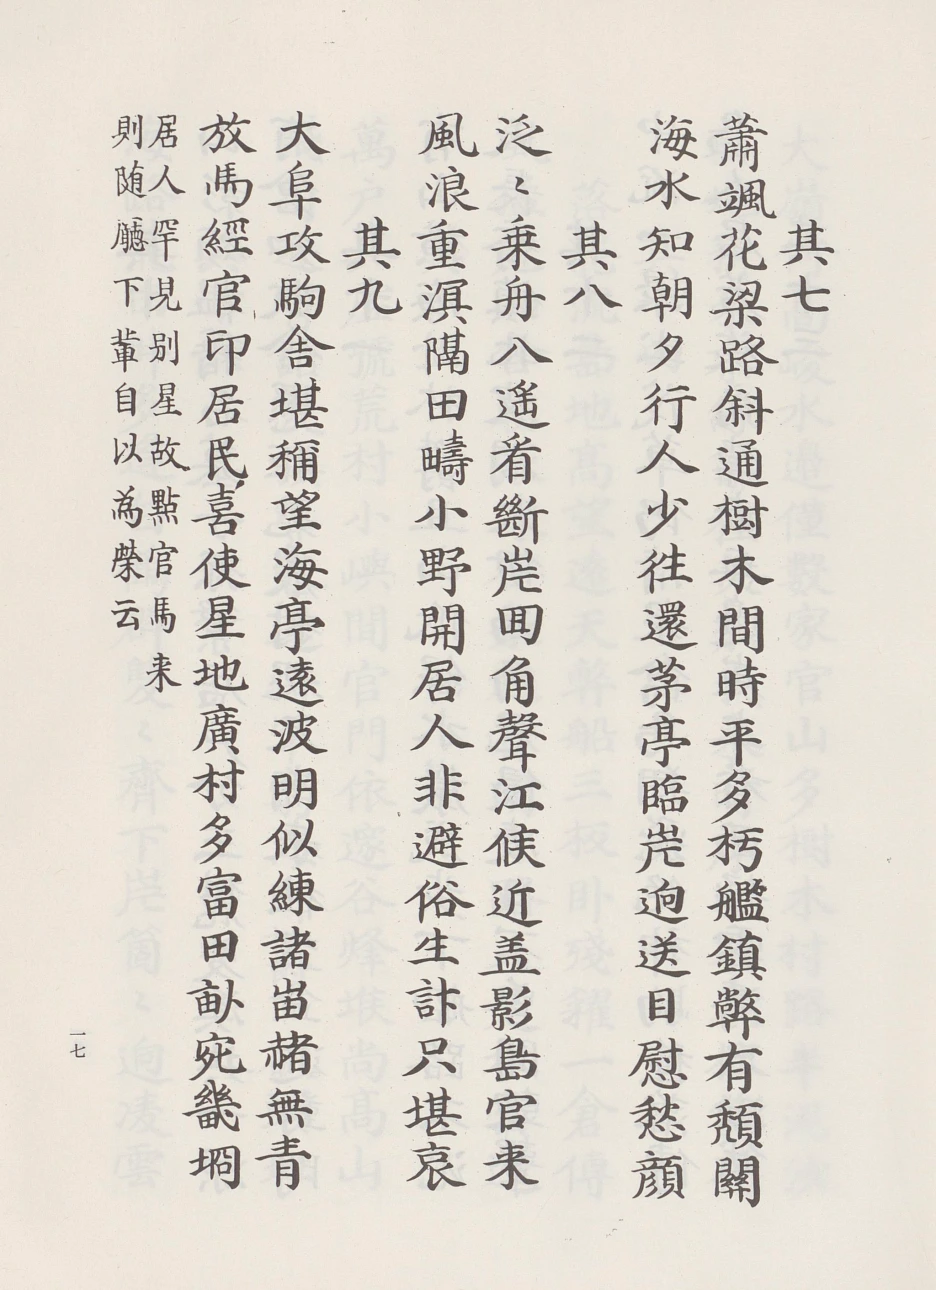 其七
蕭颯花梁路斜通樹木間時平多朽艦鎮弊有頹關
海水知朝夕行人少往還茅亭臨岸逈送目慰愁顔
其八
泛〻乗舟八遥看斷岸囬角聲江候近盖影島官来
風浪重溟隔田疇小野開居人非避俗生計只堪哀
其九
大阜攻駒舎堪稱望海亭遠波明似練諸峀赭無青
放馬經官印居民喜使星地廣村多富田畝宛畿坰
居人罕見别星故點官馬来
則随廳下軰自以為榮云
一七